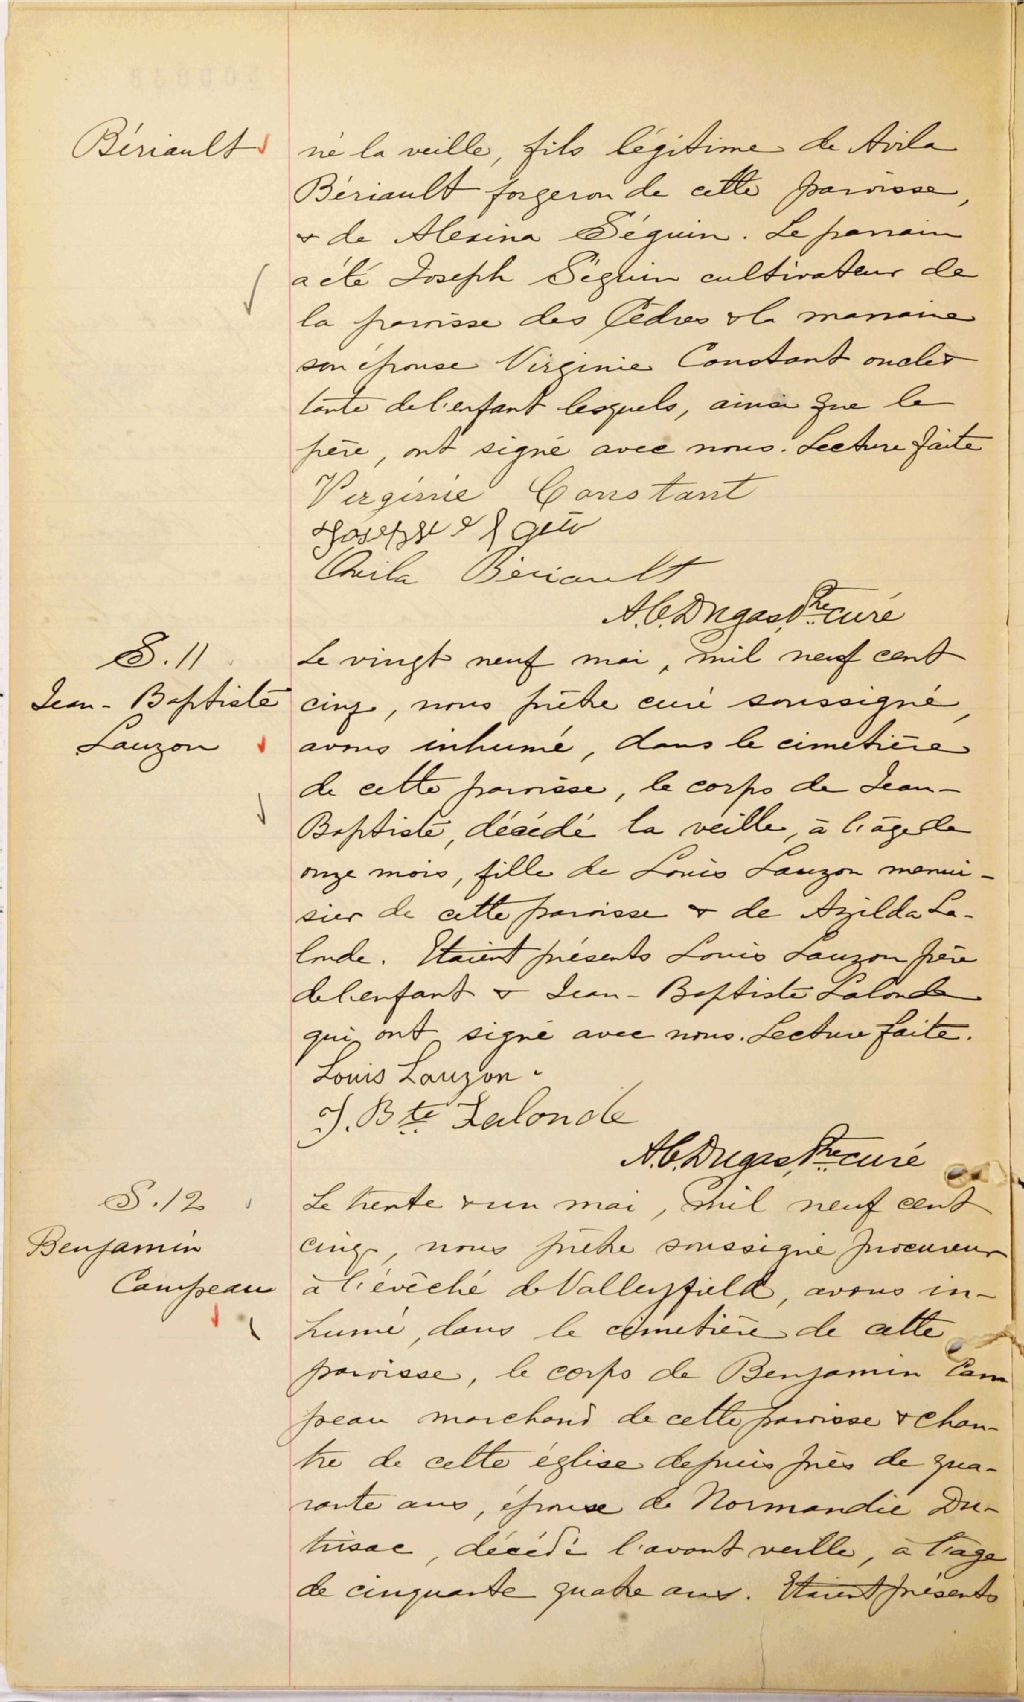 Bériault
né la veille, fils légitime de Avila
Bériault forgeron de cette paroisse,
& de Alexina Séguin. Le parrain
a été Joseph Séguin cultivateur de
la paroisse des Cèdres & la marraine
son épouse Virginie Constant oncle &
tante de l'enfant lesquels, ainsi que le
père, ont signé avec nous. Lecture faite
Virginie Constant
Avila Bériault
A.C. Dugas, Ptre curé
S. 11
Jean-Baptiste
Lauzon
Le vingt neuf mai, mil neuf cent
cinq, nous prêtre curé soussigné,
avons inhumé, dans le cimetière
de cette paroisse, le corps de Jean-
Baptiste, décédé la veille, à l'âge de
onze mois, fille de Louis Lauzon menui-
sier de cette paroisse & de Azilda La-
londe. Etaient présents Louis Lauzon père
de l'enfant & Jean-Baptiste Lalonde
qui ont signé avec nous. Lecture faite.
Louis Lauzon.
J. Bte Lalonde
A.C. Dugas, Ptre curé
S. 12
Benjamin
Campeau
Le trente & un mai, mil neuf cent
cinq, nous prêtre soussigné procureur
à l'évêché de Valleyfield, avons in-
humé, dans le cimetière de cette
paroisse, le corps de Benjamin Cam
peau marchand de cette paroisse & chan-
tre de cette église depuis près de qua-
rante ans, époux de Normandie Du-
trisac, décédé l'avant veille, à l'âge
de cinquante quatre ans. Etaient présents